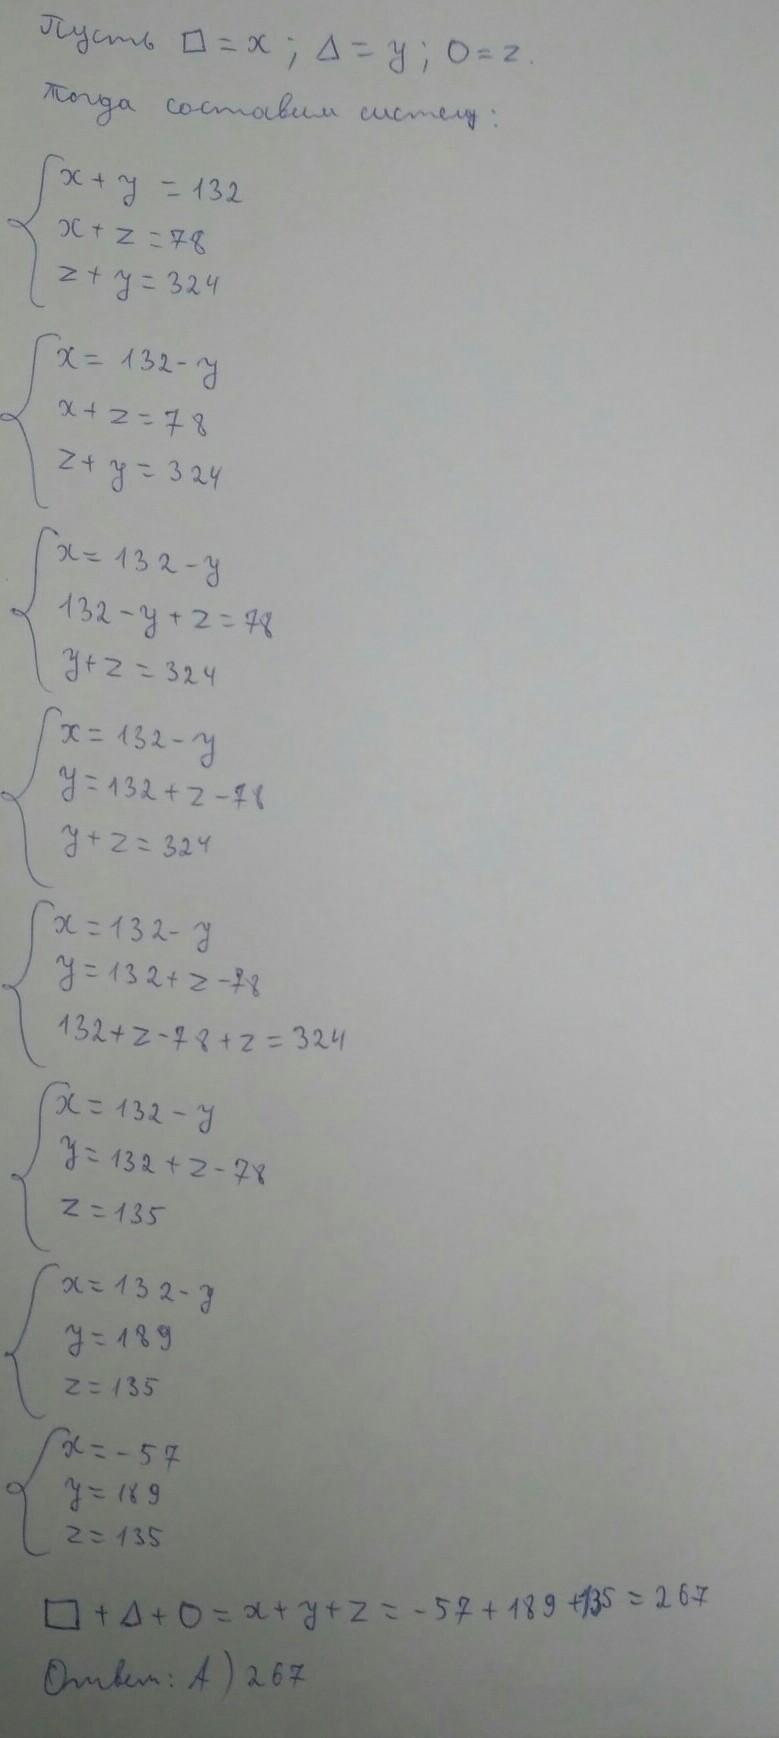 Пусть □ = x ; Δ = y ; O = z.
Тогда составим систему:
x + y = 132
x + z = 78
z + y = 324
x = 132 - y
x + z = 78
z + y = 324
x = 132 - y
132 - y + z = 78
y + z = 324
x = 132 - y
y = 132 + z - 78
y + z = 324
x = 132 - y
y = 132 + z - 78
132 + z - 78 + z = 324
x = 132 - y
y = 132 + z - 78
z = 135
x = 132 - y
y = 189
z = 135
x = - 57
y = 189
z = 135
□ + Δ + O = x + y + z = - 57 + 189 + 135 = 267
Ответ: А) 267